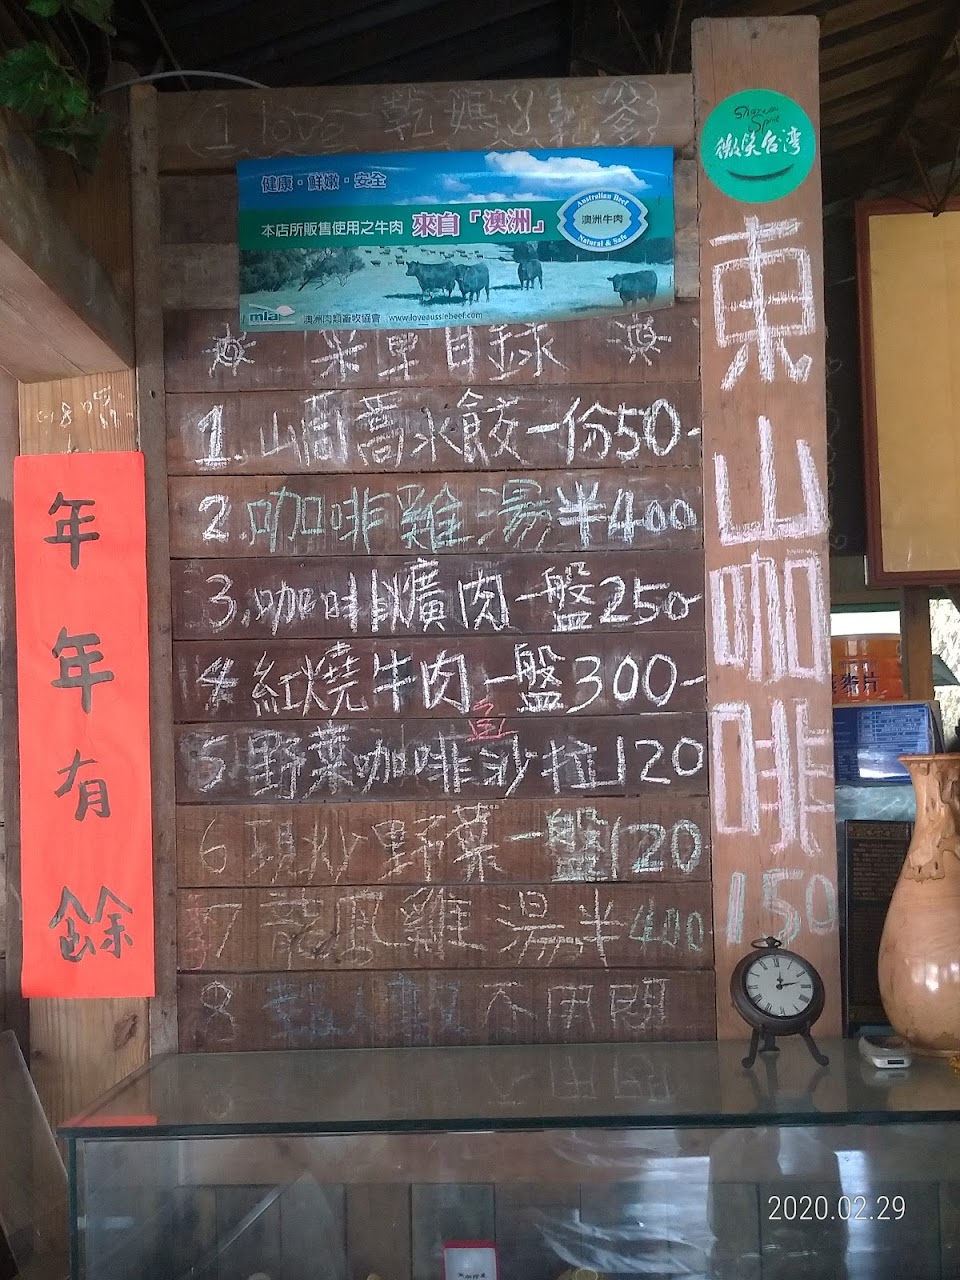 I love 乾媽&乾爹
健康·鮮嫩·安全
本店所販售使用之牛肉 來自「澳洲」
Australian Beef
澳洲牛肉
Natural & Safe
mla
澳洲肉類畜牧協會 www.loveaussiebeef.com
菜單目錄
1.山茼蒿水餃一份50-
2.咖啡雞湯半400
3.咖啡爌肉一盤250-
4.紅燒牛肉一盤300-
魚
5野菜咖啡沙拉120
6現炒野菜一盤120
7龍鳳雞湯半400
8 不用問
微笑台湾
東山咖啡
150
年年有餘
2020.02.29